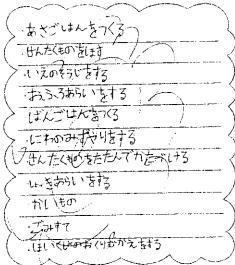 ・あさごはんをつくる
・せんたくものをほす
・いえのそうじをする
・おふろあらいをする
・ばんごはんをつくる
・にわのみずやりをする
・せんたくものをたたんでかたづける
・しょっきあらいをする
・かいもの
・ごみすて
・ほいくえんのおくりむかえをする